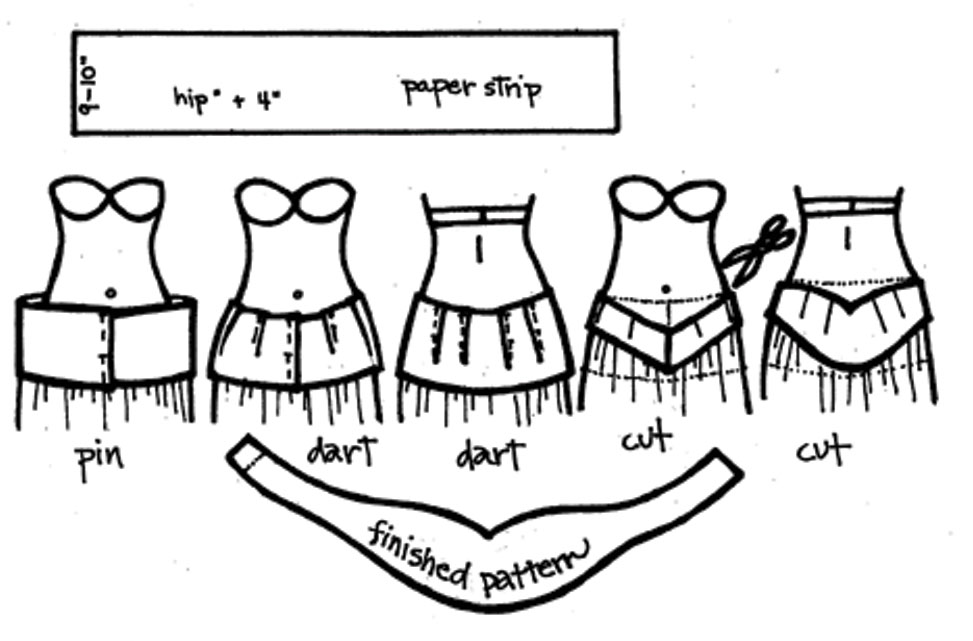 9-10"
hip" + 4"
paper strip
pin
dart
dart
cut
cut
finished pattern